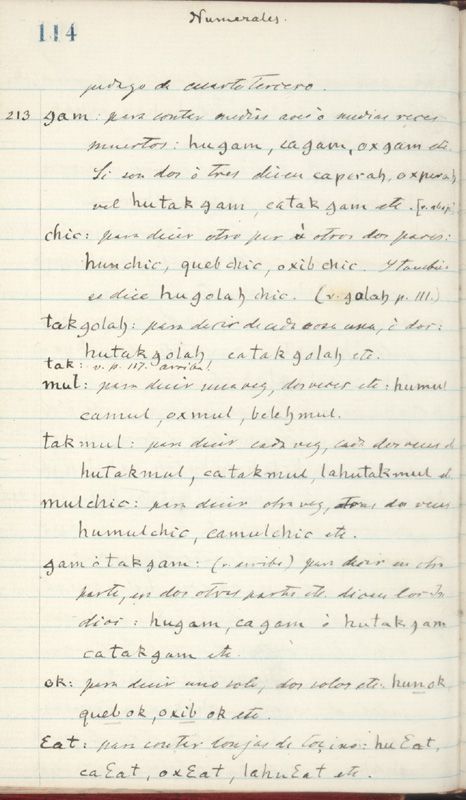 Numerales.
114
de cuarto tercero.
213 gam: para contar medias aves ò medias reces
muertos: hugam, cagam, oxgam etc.
Si son dos ò tres dicen caperah, oxperah
vel hutakgam, catakgam etc.
chic: para decir otro par ò otros dos pares:
hunchic, quebchic, oxibchic. Y tambien
se dice hugolah chic. (v. golah p. 111.)
takgolah: para decir de cada cosa una, ò dos:
hutakgolah, catakgolah etc.
tak: v. p. 117. arriba!
mul: para decir una vez, dos veces etc: humul
camul, oxmul, belehmul.
takmul: para decir cada vez, cada dos veces
hutakmul, catakmul, lahutakmul
mulchic: para decir otra vez, otras dos veces
humulchic, camulchic etc.
gam ò takgam: (v. arriba) para decir en otra
parte, en dos otras partes etc. dicen los In
dios: hugam, cagam ò hutakgam
catakgam etc.
ok: para decir uno solo, dos solos etc. hunok
quebok, oxib ok etc.
Eat: para contar lonjas de tocino: huEat,
caEat, oxEat, lahuEat etc.